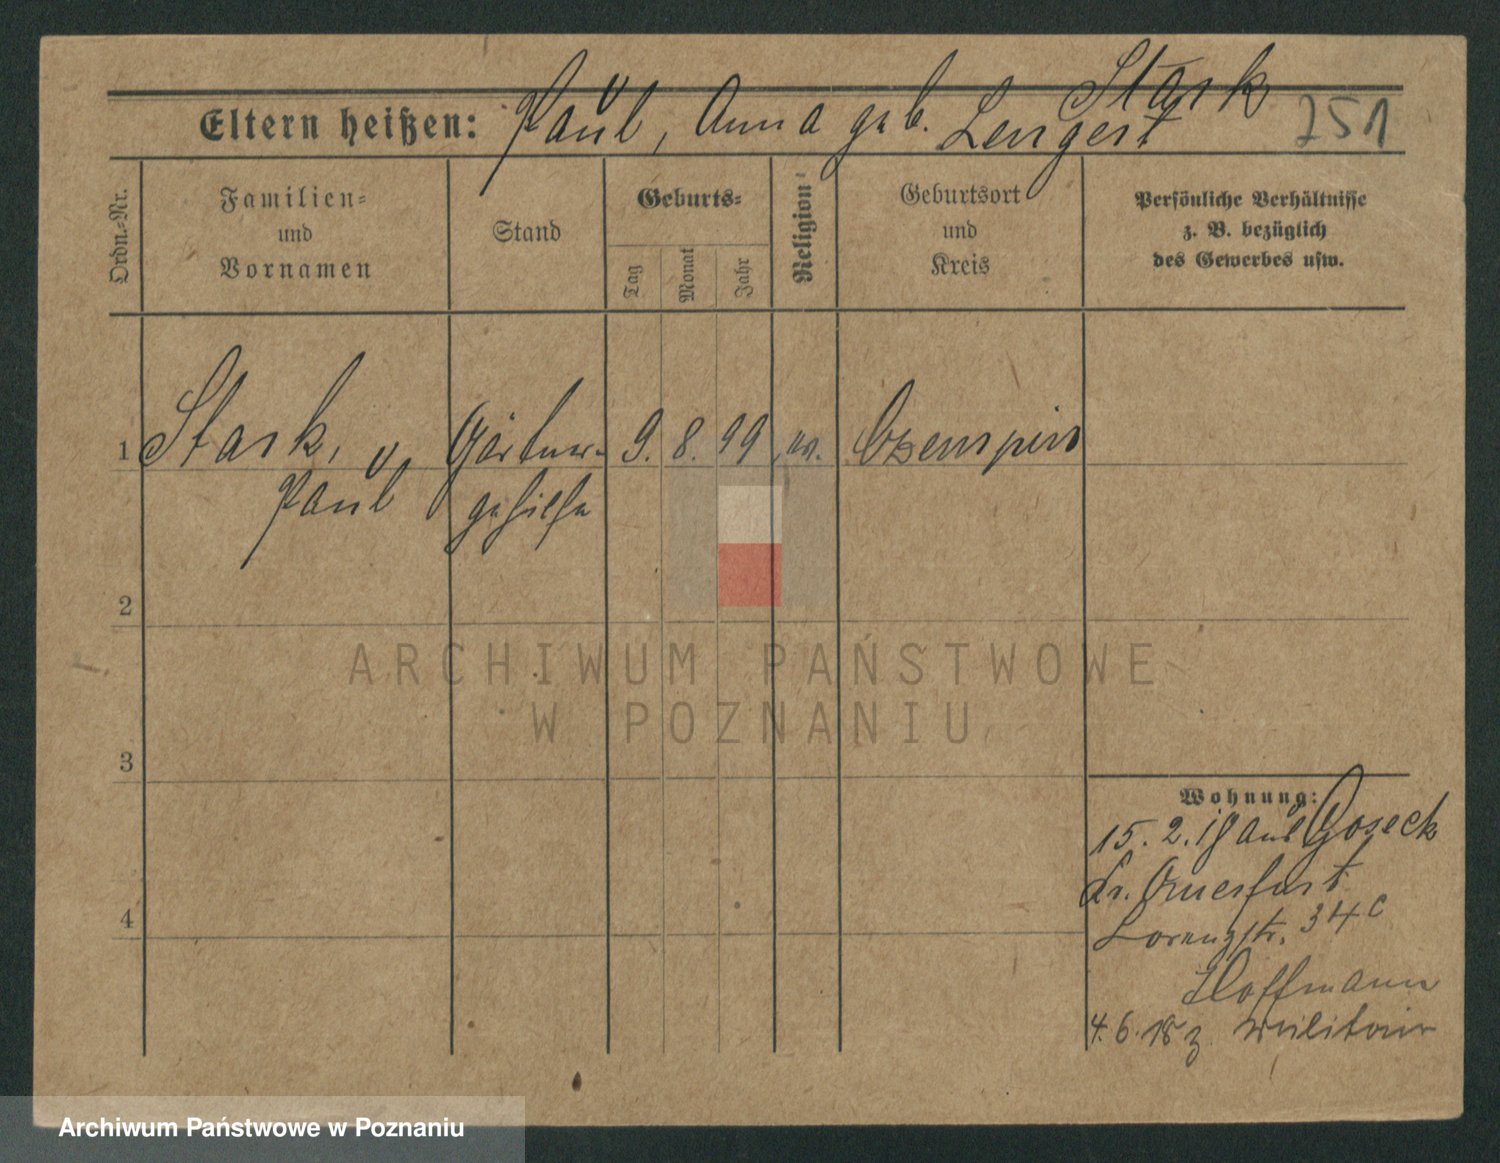 Stark
Eltern heißen: Paul, Anna geb. Lengert 751
Ordn.-Nr.
Familien-
und
Vornamen
Stand
Geburts-
Tag
Monat
Jahr
Religion
Geburtsort
und
Kreis
Persönliche Verhältnisse
z. B. bezüglich
des Gewerbes usw.
1 Stark, Gärtner- 9. 8. 99 ev.
Paul gehilfe
2
ARCHIWUM PAŃSTWOWE
W POZNANIU
3
Wohnung:
15. 2. 18 aus Goseck
Kr. Querfurt
4
Lorenzstr. 34 c
Hoffmann
4. 6. 18 z. Militair
Archiwum Państwowe w Poznaniu